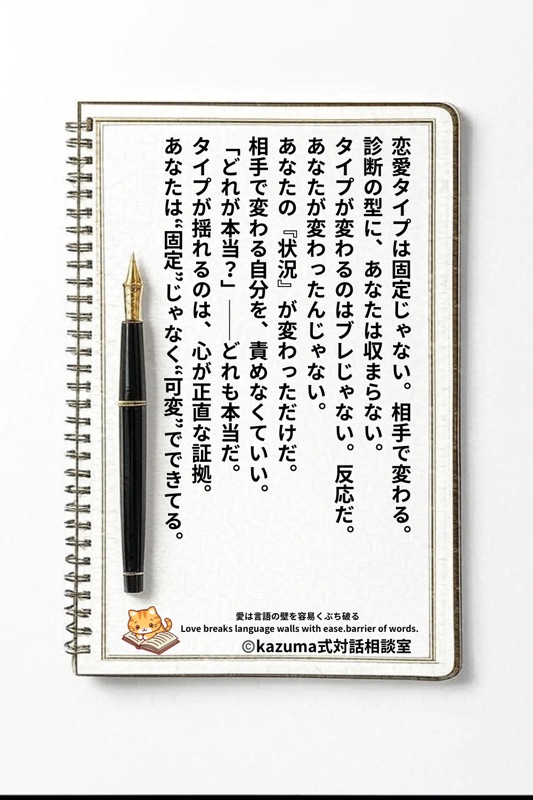 恋愛タイプは固定じゃない。相手で変わる。
診断の型に、あなたは収まらない。
タイプが変わるのはブレじゃない。反応だ。
あなたが変わったんじゃない。
あなたの『状況』が変わっただけだ。
相手で変わる自分を、責めなくていい。
「どれが本当？」――どれも本当だ。
タイプが揺れるのは、心が正直な証拠。
あなたは“固定”じゃなく“可変”でできてる。
愛は言語の壁を容易くぶち破る
Love breaks language walls with ease.barrier of words.
©kazuma式対話相談室